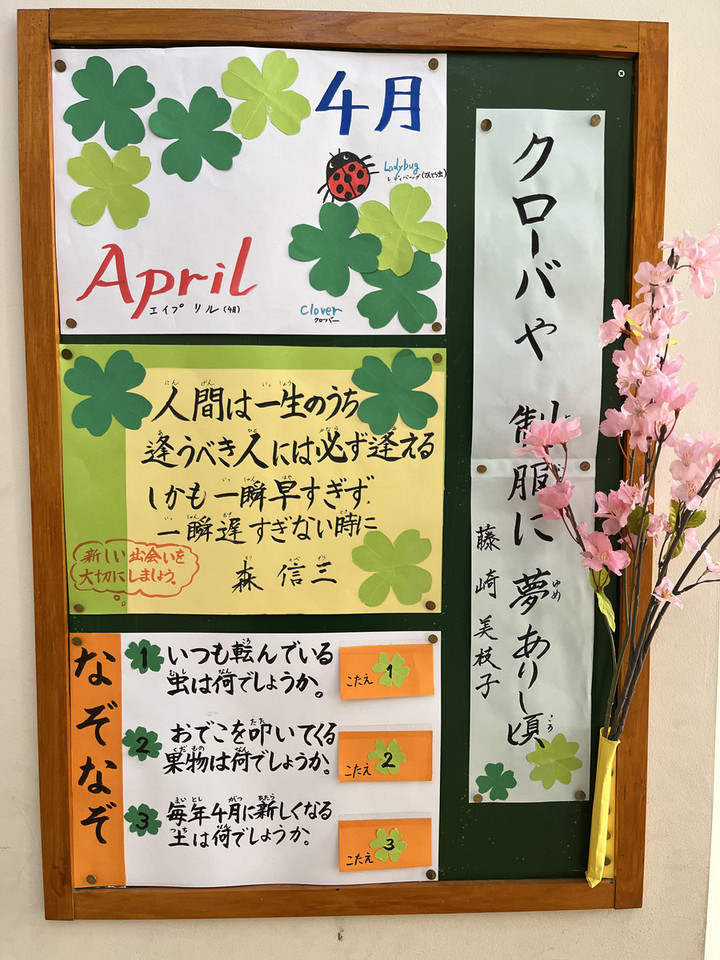 4月
Ladybug
レディバーグ(てんとう虫)
April
エイプリル(4月)
Clover
クローバー
人間は一生のうち
逢うべき人には必ず逢える
しかも一瞬早すぎず、
一瞬遅すぎない時に
森 信三
新しい出会いを
大切にしましょう。
なぞなぞ
1 いつも転んでいる
虫は何でしょうか。
こたえ 1
2 おでこを叩いてくる
果物は何でしょうか。
こたえ 2
3 毎年4月に新しくなる
土は何でしょうか。
こたえ 3
クローバや 制服に 夢ありし頃
藤崎 美枝子